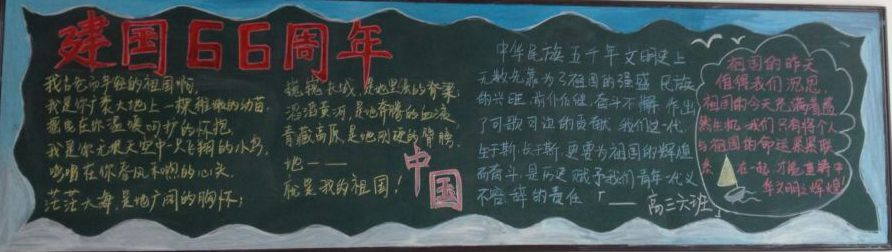 建国66周年
我古老而年轻的祖国啊,
我是你广袤大地上一棵稚嫩的幼苗,
在你温暖呵护的怀抱,
我是你无垠天空中一只飞翔的小鸟,
在你春风未眠的心头,
茫茫大海,是她广阔的胸怀;
巍巍长城,是她坚实的脊梁
滔滔黄河,是她奔腾的血液
青藏高原,是她刚硬的臂膀,
她——
就是我的祖国!
中国
中华民族五千年文明史上
无数先辈为了祖国的强盛 民族
的兴旺 前仆后继 奋斗不懈 作出
了可歌可泣的贡献 我们这一代,
生于斯,长于斯,更要为祖国的辉煌
而奋斗,是历史赋予我们青年一代义
不容辞的责任
「——高三六班」
祖国的昨天
值得我们沉思,
祖国的今天充满着盎
然生机,我们只有将个人
与祖国的命运紧紧联
系在一起,才能重铸中
华文明之辉煌!